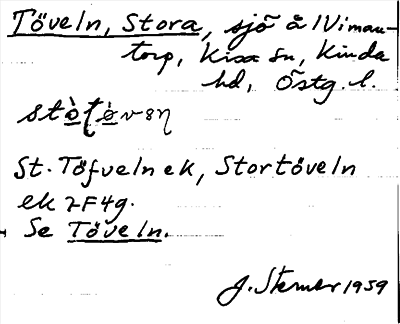 Töveln, Stora, sjö å Vimau-
torp, Kisa sn, Kinda
hd, Östg. l.
St. Töfveln ek, Stortöveln
ek 7F4g.
Se Töveln.
J. Stemer 1959